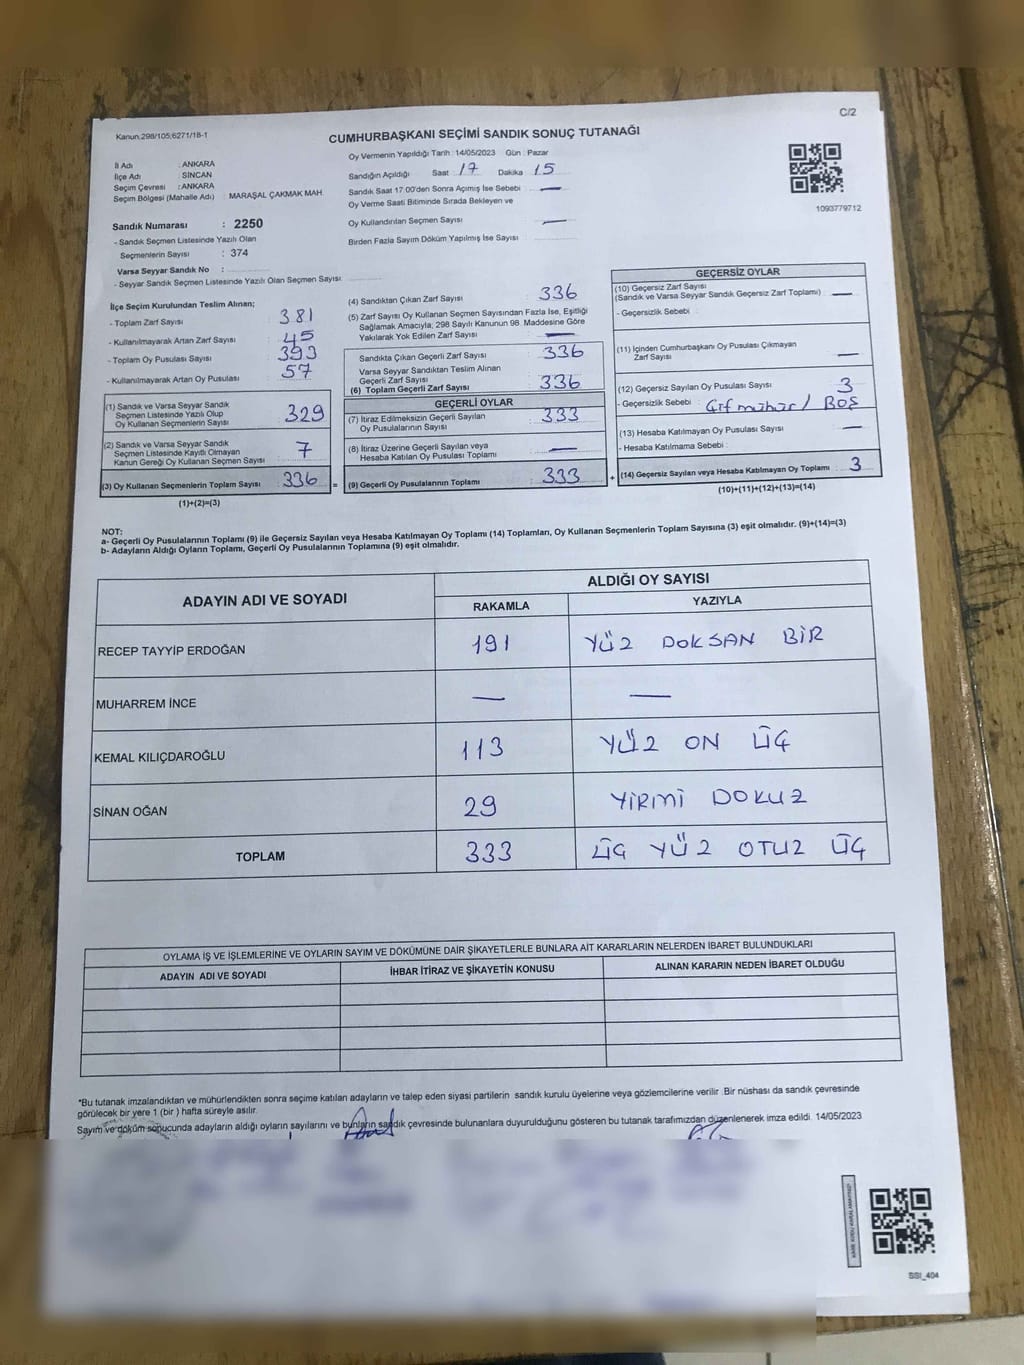 C/2
Kanun:298/105;6271/18-1
CUMHURBAŞKANI SEÇİMİ SANDIK SONUÇ TUTANAĞI
İl Adı : ANKARA
İlçe Adı : SİNCAN
Seçim Çevresi : ANKARA
Seçim Bölgesi (Mahalle Adı) : MARAŞAL ÇAKMAK MAH.
Sandık Numarası : 2250
- Sandık Seçmen Listesinde Yazılı Olan
Seçmenlerin Sayısı : 374
Varsa Seyyar Sandık No :
- Seyyar Sandık Seçmen Listesinde Yazılı Olan Seçmen Sayısı:
Oy Vermenin Yapıldığı Tarih : 14/05/2023 Gün : Pazar
Sandığın Açıldığı Saat 17 Dakika 15
Sandık Saat 17:00'den Sonra Açımış İse Sebebi —
Oy Verme Saati Bitiminde Sırada Bekleyen ve
Oy Kullandırılan Seçmen Sayısı —
Birden Fazla Sayım Döküm Yapılmış İse Sayısı
1093779712
İlçe Seçim Kurulundan Teslim Alınan;
- Toplam Zarf Sayısı : 381
- Kullanılmayarak Artan Zarf Sayısı : 45
- Toplam Oy Pusulası Sayısı : 393
- Kullanılmayarak Artan Oy Pusulası : 57
(1) Sandık ve Varsa Seyyar Sandık
Seçmen Listesinde Yazılı Olup
Oy Kullanan Seçmenlerin Sayısı : 329
(2) Sandık ve Varsa Seyyar Sandık
Seçmen Listesinde Kayıtlı Olmayan
Kanun Gereği Oy Kullanan Seçmen Sayısı : 7
(3) Oy Kullanan Seçmenlerin Toplam Sayısı : 336
(1)+(2)=(3)
=
(4) Sandıktan Çıkan Zarf Sayısı : 336
(5) Zarf Sayısı Oy Kullanan Seçmen Sayısından Fazla İse, Eşitliği
Sağlamak Amacıyla; 298 Sayılı Kanunun 98. Maddesine Göre
Yakılarak Yok Edilen Zarf Sayısı : —
Sandıkta Çıkan Geçerli Zarf Sayısı : 336
Varsa Seyyar Sandıktan Teslim Alınan
Geçerli Zarf Sayısı
(6) Toplam Geçerli Zarf Sayısı : 336
GEÇERLİ OYLAR
(7) İtiraz Edilmeksizin Geçerli Sayılan
Oy Pusulalarının Sayısı : 333
(8) İtiraz Üzerine Geçerli Sayılan veya
Hesaba Katılan Oy Pusulası Toplamı : —
(9) Geçerli Oy Pusulalarının Toplamı : 333
+
GEÇERSİZ OYLAR
(10) Geçersiz Zarf Sayısı
(Sandık ve Varsa Seyyar Sandık Geçersiz Zarf Toplamı) : —
- Geçersizlik Sebebi :
(11) İçinden Cumhurbaşkanı Oy Pusulası Çıkmayan
Zarf Sayısı : —
(12) Geçersiz Sayılan Oy Pusulası Sayısı : 3
- Geçersizlik Sebebi : Çift mühür / Boş
(13) Hesaba Katılmayan Oy Pusulası Sayısı : —
- Hesaba Katılmama Sebebi :
(14) Geçersiz Sayılan veya Hesaba Katılmayan Oy Toplamı : 3
(10)+(11)+(12)+(13)=(14)
NOT:
a- Geçerli Oy Pusulalarının Toplamı (9) ile Geçersiz Sayılan veya Hesaba Katılmayan Oy Toplamı (14) Toplamları, Oy Kullanan Seçmenlerin Toplam Sayısına (3) eşit olmalıdır. (9)+(14)=(3)
b- Adayların Aldığı Oyların Toplamı, Geçerli Oy Pusulalarının Toplamına (9) eşit olmalıdır.
ADAYIN ADI VE SOYADI
ALDIĞI OY SAYISI
RAKAMLA YAZIYLA
RECEP TAYYİP ERDOĞAN 191 YÜZ DOKSAN BİR
MUHARREM İNCE — —
KEMAL KILIÇDAROĞLU 113 YÜZ ON ÜÇ
SİNAN OĞAN 29 YİRMİ DOKUZ
TOPLAM 333 ÜÇ YÜZ OTUZ ÜÇ
OYLAMA İŞ VE İŞLEMLERİNE VE OYLARIN SAYIM VE DÖKÜMÜNE DAİR ŞİKAYETLERLE BUNLARA AİT KARARLARIN NELERDEN İBARET BULUNDUKLARI
ADAYIN ADI VE SOYADI İHBAR İTİRAZ VE ŞİKAYETİN KONUSU ALINAN KARARIN NEDEN İBARET OLDUĞU
*Bu tutanak imzalandıktan ve mühürlendikten sonra seçime katılan adayların ve talep eden siyasi partilerin sandık kurulu üyelerine veya gözlemcilerine verilir. Bir nüshası da sandık çevresinde
görülecek bir yere 1 (bir ) hafta süreyle asılır.
Sayım ve döküm sonucunda adayların aldığı oyların sayılarını ve bunların sandık çevresinde bulunanlara duyurulduğunu gösteren bu tutanak tarafımızdan düzenlenerek imza edildi. 14/05/2023
SSI_404